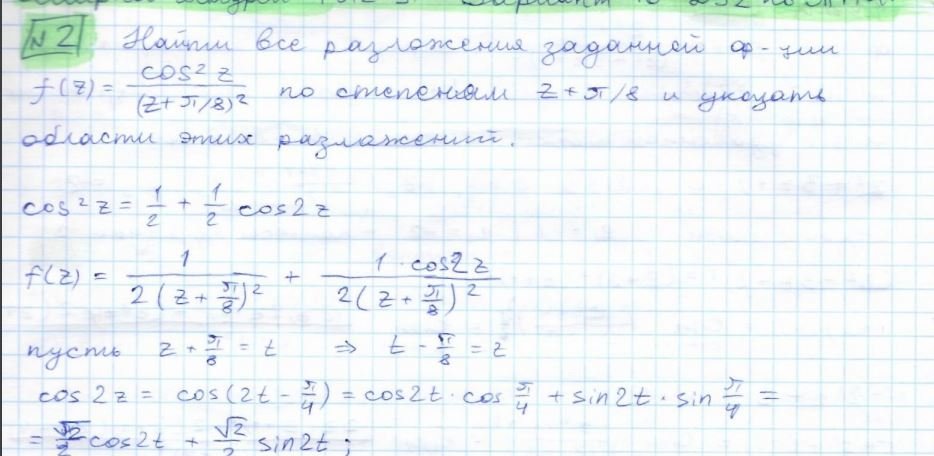 Вариант
№2 Найти все разложения заданной ф-ции
f(z) = cos² z / (z + π/8)² по степеням z + π/8 и указать
области этих разложений.
cos² z = 1/2 + 1/2 cos2z
f(z) = 1 / 2(z + π/8)² + 1·cos2z / 2(z + π/8)²
пусть z + π/8 = t ⇒ t - π/8 = z
cos2z = cos(2t - π/4) = cos2t · cos π/4 + sin2t · sin π/4 =
= √2/2 cos2t + √2/2 sin2t;